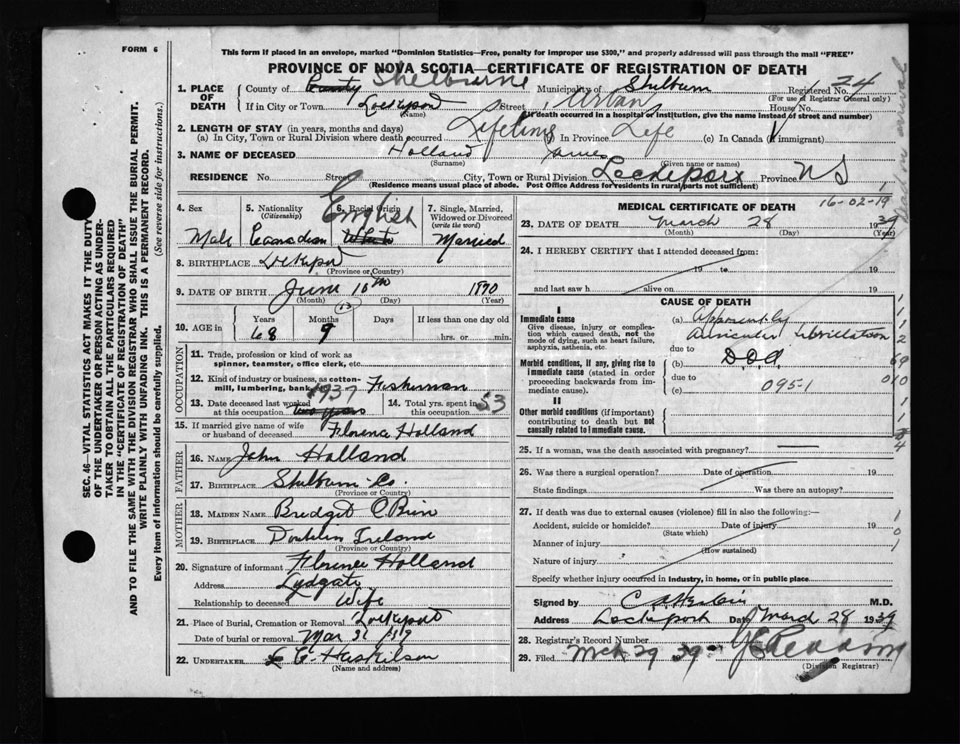 FORM 6
This form if placed in an envelope, marked "Dominion Statistics—Free, penalty for improper use $300," and properly addressed will pass through the mail "FREE"
PROVINCE OF NOVA SCOTIA—CERTIFICATE OF REGISTRATION OF DEATH
1. PLACE OF DEATH
County of County Shelburne Municipality of Shelburn Registered No. 24
(For use of Registrar General only)
If in City or Town Lockeport Street Urban House No.
(Name) (If death occurred in a hospital or institution, give the name instead of street and number)
2. LENGTH OF STAY (in years, months and days)
(a) In City, Town or Rural Division where death occurred Lifetime (b) In Province Life (c) In Canada (if immigrant)
3. NAME OF DECEASED Holland James
(Surname) (Given name or names)
RESIDENCE No. Street City, Town or Rural Division Lockeport Province NS
(Residence means usual place of abode. Post Office Address for residents in rural parts not sufficient)
4. Sex Male
5. Nationality (Citizenship) Canadian
6. Racial Origin English White
7. Single, Married, Widowed or Divorced (write the word) Married
8. BIRTHPLACE Lockeport
(Province or Country)
9. DATE OF BIRTH June 15th 1870
(Month) (Day) (Year)
10. AGE in Years 68 Months 9 Days If less than one day old hrs. or min.
OCCUPATION
11. Trade, profession or kind of work as spinner, teamster, office clerk, etc.
12. Kind of industry or business, as cotton-mill, lumbering, bank Fisherman
13. Date deceased last worked at this occupation 1937 two years
14. Total yrs. spent in this occupation 53
15. If married give name of wife or husband of deceased Florence Holland
FATHER
16. NAME John Holland
17. BIRTHPLACE Shelburn Co.
(Province or Country)
MOTHER
18. MAIDEN NAME Bredget O Brien
19. BIRTHPLACE Doublin Ireland
(Province or Country)
20. Signature of informant Florence Holland
Address Lydgate
Relationship to deceased Wife
21. Place of Burial, Cremation or Removal Lockeport
Date of burial or removal Mar 31
22. UNDERTAKER
(Name and address)
16-02-19
MEDICAL CERTIFICATE OF DEATH
23. DATE OF DEATH March 28 1939
(Month) (Day) (Year)
24. I HEREBY CERTIFY that I attended deceased from:
19 to 19
and last saw h alive on 19
CAUSE OF DEATH
I
Immediate cause
Give disease, injury or complication which caused death, not the mode of dying, such as heart failure, asphyxia, asthenia, etc.
(a) Apparently Auricular fibrillation
due to
Morbid conditions, if any, giving rise to immediate cause (stated in order proceeding backwards from immediate cause).
(b) D.O.A.
due to
(c) 095-1
II
Other morbid conditions (if important) contributing to death but not causally related to immediate cause.
25. If a woman, was the death associated with pregnancy?
26. Was there a surgical operation? Date of operation 19
State findings Was there an autopsy?
27. If death was due to external causes (violence) fill in also the following:—
Accident, suicide or homicide? Date of injury 19
(State which)
Manner of injury
(How sustained)
Nature of injury
Specify whether injury occurred in industry, in home, or in public place
Signed by M.D.
Address Lockeport Date March 28 1939
28. Registrar's Record Number
29. Filed Mch 29 39
(Division Registrar)
dead on arrival
SEC. 46—VITAL STATISTICS ACT MAKES IT THE DUTY
OF THE UNDERTAKER OR PERSON ACTING AS UNDER-
TAKER TO OBTAIN ALL THE PARTICULARS REQUIRED
IN THE "CERTIFICATE OF REGISTRATION OF DEATH"
AND TO FILE THE SAME WITH THE DIVISION REGISTRAR WHO SHALL ISSUE THE BURIAL PERMIT.
WRITE PLAINLY WITH UNFADING INK. THIS IS A PERMANENT RECORD.
Every item of information should be carefully supplied. (See reverse side for instructions.)